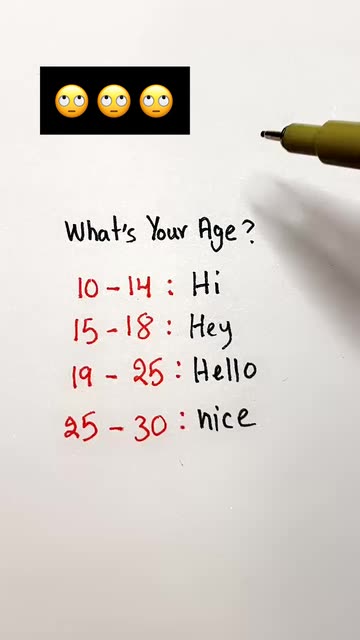 🙄🙄🙄
What's Your Age?
10 - 14 : Hi
15 - 18 : Hey
19 - 25 : Hello
25 - 30 : nice